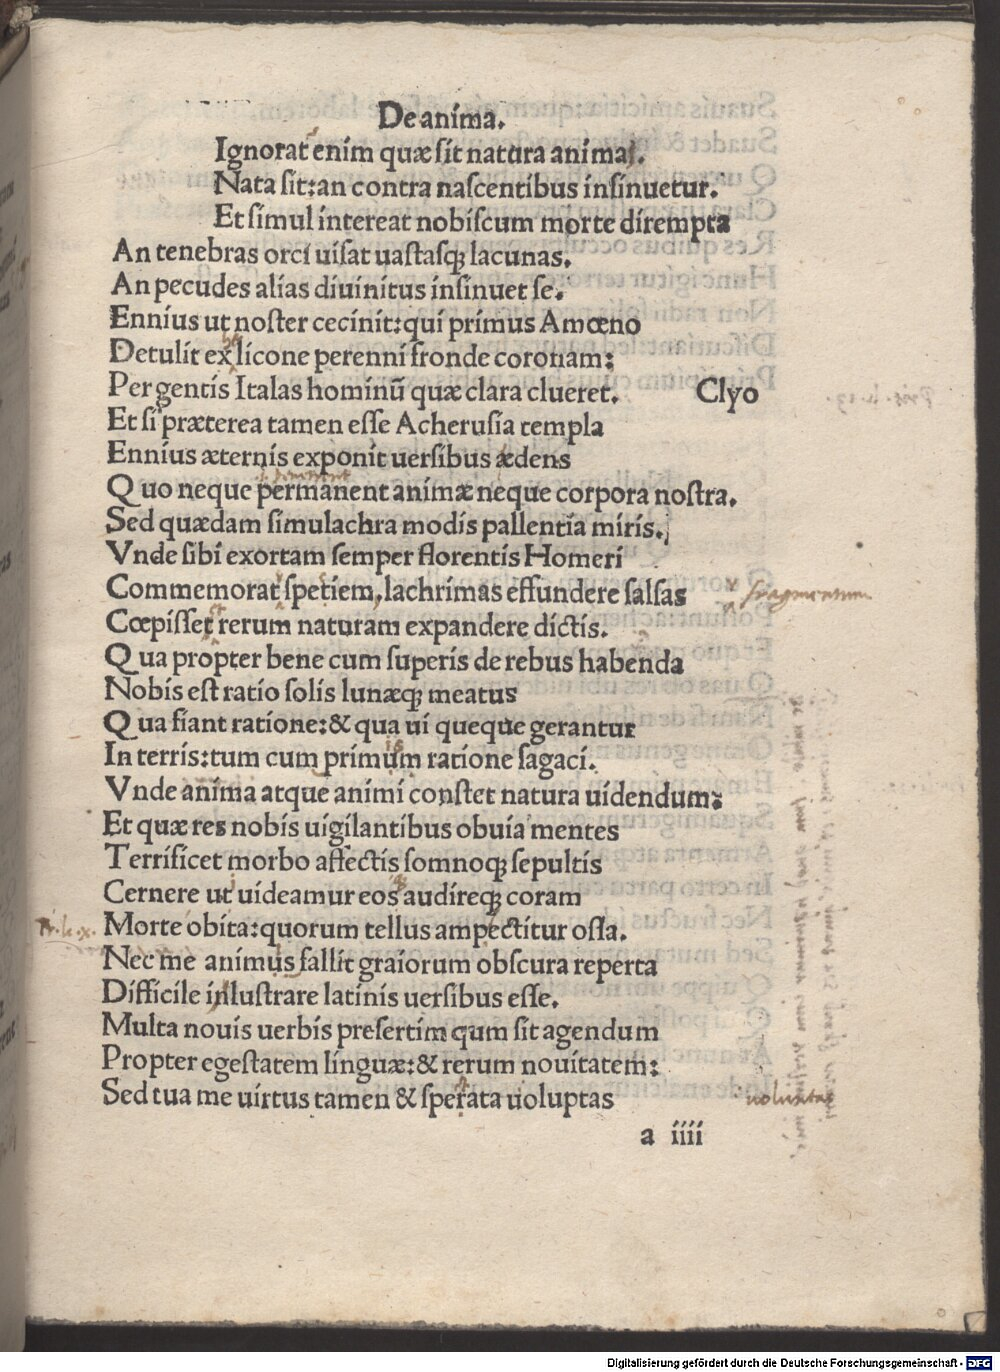 De anima.
Ignorat enim quæ sit natura animai.
Nata sit: an contra nascentibus insinuetur.
Et simul intereat nobiscum morte dirempta
An tenebras orci uisat uastasq; lacunas.
An pecudes alias diuinitus insinuet se.
Ennius ut noster cecinit: qui primus Amœno
Detulit ex licone perenni fronde coronam:
Per gentis Italas hominū quæ clara clueret. Clyo
Et si præterea tamen esse Acherusia templa
Ennius æternis exponit uersibus ædens
Quo neque permanent animæ neque corpora nostra.
Sed quædam simulachra modis pallentia miris.
Vnde sibi exortam semper florentis Homeri
Commemorat spetiem, lachrimas effundere salsas
Cœpisset rerum naturam expandere dictis.
Qua propter bene cum superis de rebus habenda
Nobis est ratio solis lunæq; meatus
Qua fiant ratione: & qua ui queque gerantur
In terris: tum cum primum ratione sagaci.
Vnde anima atque animi constet natura uidendum:
Et quæ res nobis uigilantibus obuia mentes
Terrificet morbo affectis somnoq; sepultis
Cernere ut uideamur eos audireq; coram
Morte obita: quorum tellus ampectitur ossa.
Nec me animus fallit graiorum obscura reperta
Difficile inlustrare latinis uersibus esse.
Multa nouis uerbis presertim qum sit agendum
Propter egestatem linguæ: & rerum nouitatem:
Sed tua me uirtus tamen & sperata uoluptas
uoluntas
a iiii
Digitalisierung gefördert durch die Deutsche Forschungsgemeinschaft - DFG